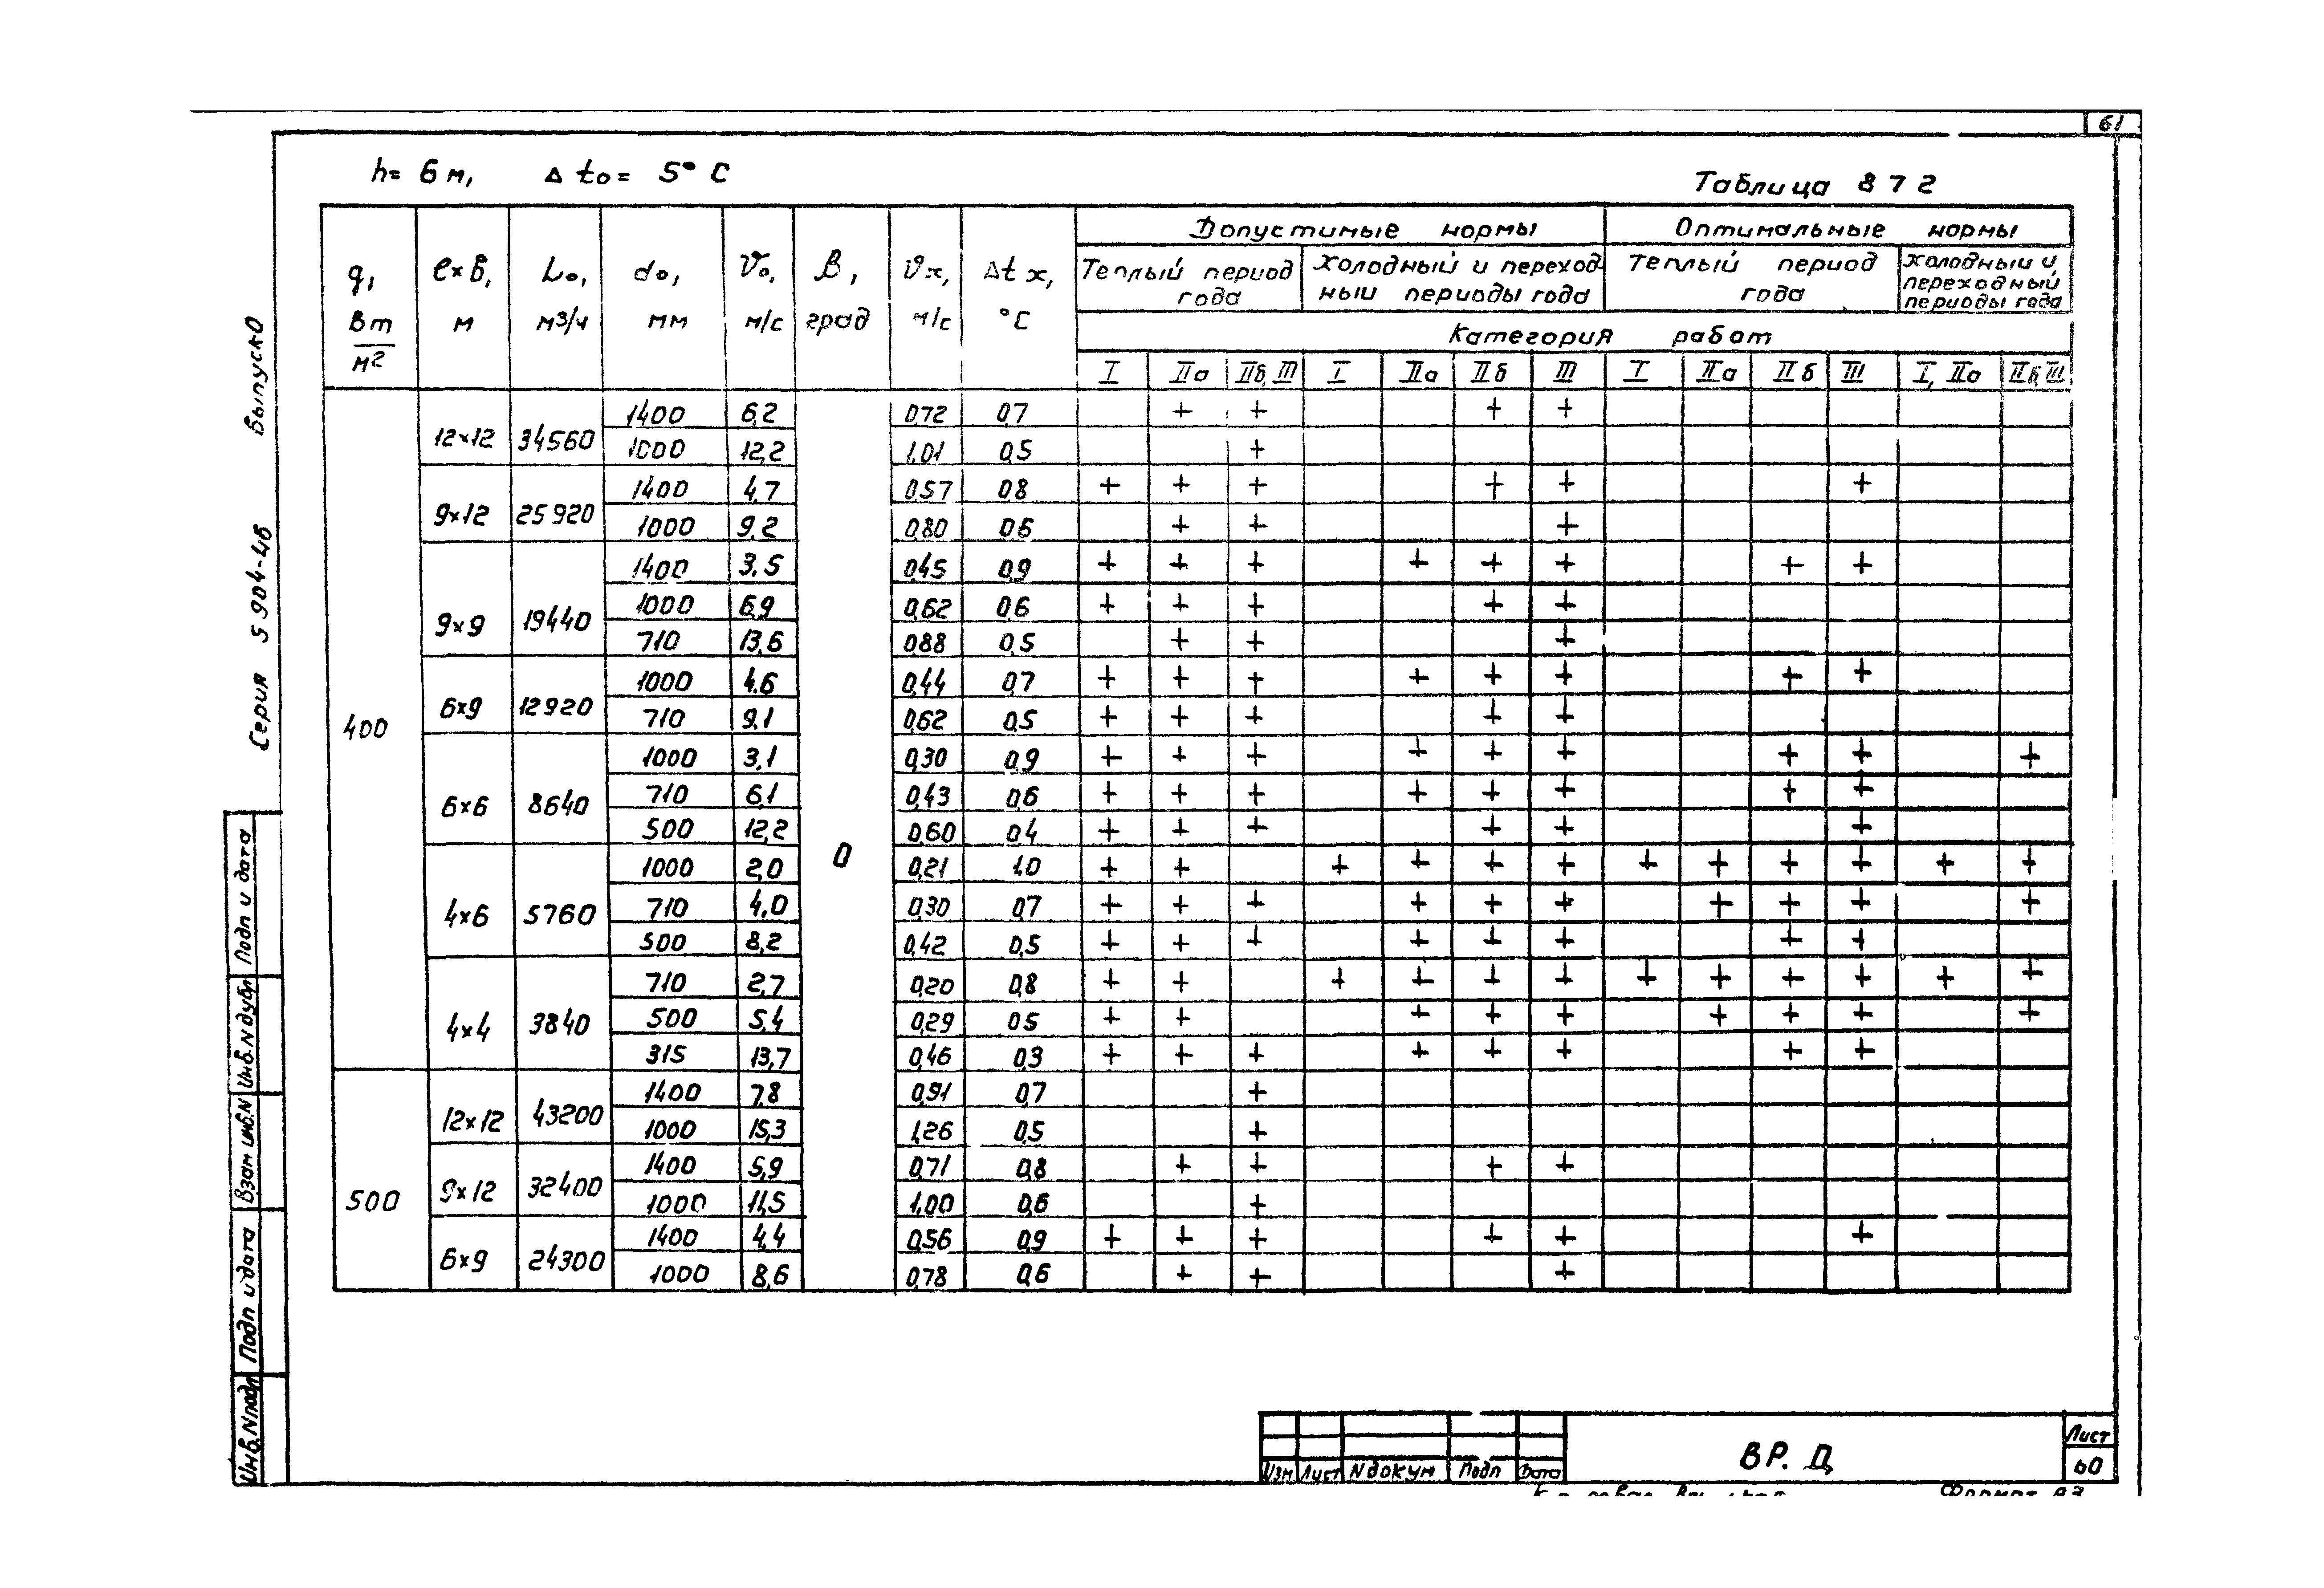 61
h= 6 м, Δ to= 5° C
Таблица 8 7 2
q, Вт/м² ℓ×в, м Lo, м3/ч do, мм Vo, м/с β, град Vx, м/с Δt x, °C
Допустимые нормы Оптимальные нормы
Теплый период года Холодный и переходный периоды года Теплый период года Холодный и переходный периоды года
Категория работ
I IIа IIб, III I IIа IIб III I IIа IIб III I, IIа IIб, III
400 0
12×12 34560 1400 6,2 0,72 0,7 + + + +
1000 12,2 1,01 0,5 +
9×12 25920 1400 4,7 0,57 0,8 + + + + + +
1000 9,2 0,80 0,6 + + +
9×9 19440 1400 3,5 0,45 0,9 + + + + + + + +
1000 6,9 0,62 0,6 + + + + +
710 13,6 0,88 0,5 + + +
6×9 12920 1000 4,6 0,44 0,7 + + + + + + + +
710 9,1 0,62 0,5 + + + + +
6×6 8640 1000 3,1 0,30 0,9 + + + + + + + + +
710 6,1 0,43 0,6 + + + + + + + +
500 12,2 0,60 0,4 + + + + + +
4×6 5760 1000 2,0 0,21 1,0 + + + + + + + + + + + +
710 4,0 0,30 0,7 + + + + + + + + + +
500 8,2 0,42 0,5 + + + + + + + +
4×4 3840 710 2,7 0,20 0,8 + + + + + + + + + + + +
500 5,4 0,29 0,5 + + + + + + + + +
315 13,7 0,46 0,3 + + + + + + + +
500
12×12 43200 1400 7,8 0,91 0,7 +
1000 15,3 1,26 0,5 +
9×12 32400 1400 5,9 0,71 0,8 + + + +
1000 11,5 1,00 0,6 +
6×9 24300 1400 4,4 0,56 0,9 + + + + + +
1000 8,6 0,78 0,6 + + +
Серия 5 904-46 Выпуск 0
Подп и дата
Инв.N дубл
Взам инв.N
Подп и дата
Инв.N подл
Изм Лист N докум Подп Дата
ВР. Д
Лист
60
Формат А3